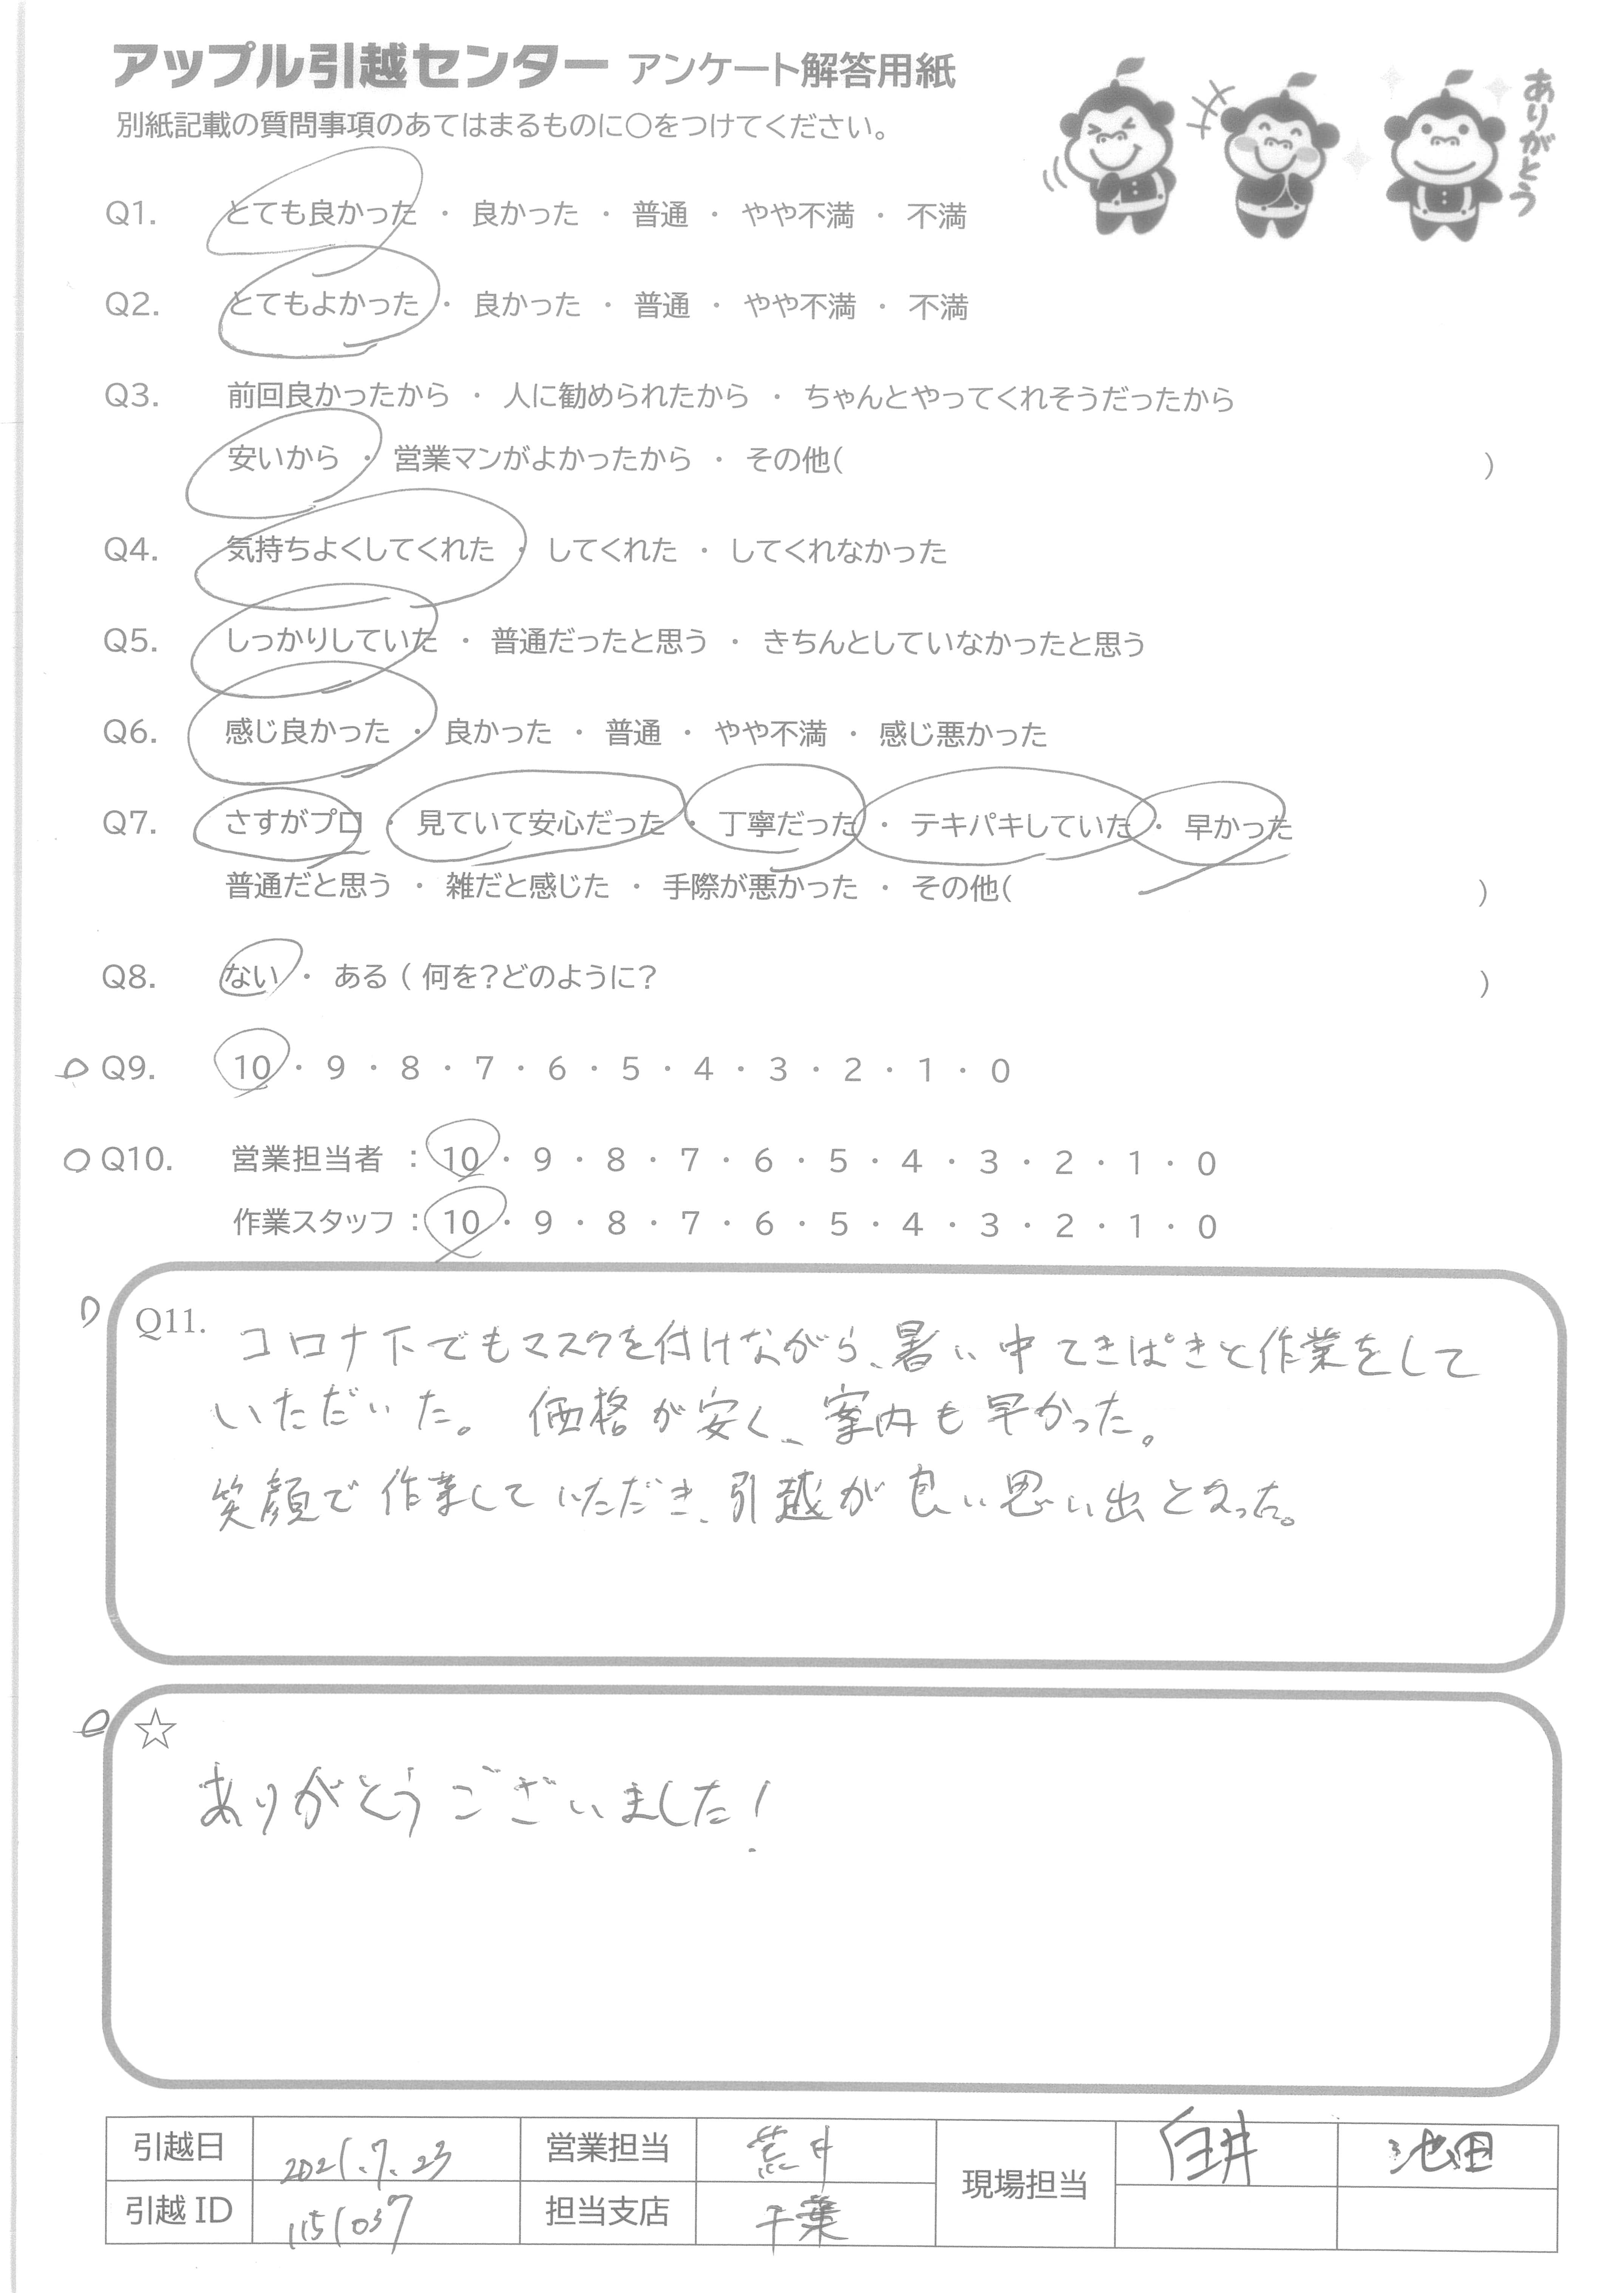 アップル引越センター アンケート解答用紙
別紙記載の質問事項のあてはまるものに○をつけてください。
ありがとう
Q1. とても良かった ・ 良かった ・ 普通 ・ やや不満 ・ 不満
Q2. とてもよかった ・ 良かった ・ 普通 ・ やや不満 ・ 不満
Q3. 前回良かったから ・ 人に勧められたから ・ ちゃんとやってくれそうだったから
安いから ・ 営業マンがよかったから ・ その他( )
Q4. 気持ちよくしてくれた ・ してくれた ・ してくれなかった
Q5. しっかりしていた ・ 普通だったと思う ・ きちんとしていなかったと思う
Q6. 感じ良かった ・ 良かった ・ 普通 ・ やや不満 ・ 感じ悪かった
Q7. さすがプロ ・ 見ていて安心だった ・ 丁寧だった ・ テキパキしていた ・ 早かった
普通だと思う ・ 雑だと感じた ・ 手際が悪かった ・ その他( )
Q8. ない ・ ある ( 何を?どのように? )
Q9. 10 ・ 9 ・ 8 ・ 7 ・ 6 ・ 5 ・ 4 ・ 3 ・ 2 ・ 1 ・ 0
Q10. 営業担当者 : 10 ・ 9 ・ 8 ・ 7 ・ 6 ・ 5 ・ 4 ・ 3 ・ 2 ・ 1 ・ 0
作業スタッフ : 10 ・ 9 ・ 8 ・ 7 ・ 6 ・ 5 ・ 4 ・ 3 ・ 2 ・ 1 ・ 0
Q11. コロナ下でもマスクを付けながら、暑い中てきぱきと作業をして
いただいた。価格が安く、案内も早かった。
笑顔で作業していただき、引越が良い思い出となった。
☆
ありがとうございました!
引越日 2021.7.23 営業担当 荒井 現場担当 臼井 池田
引越ID 1151037 担当支店 千葉